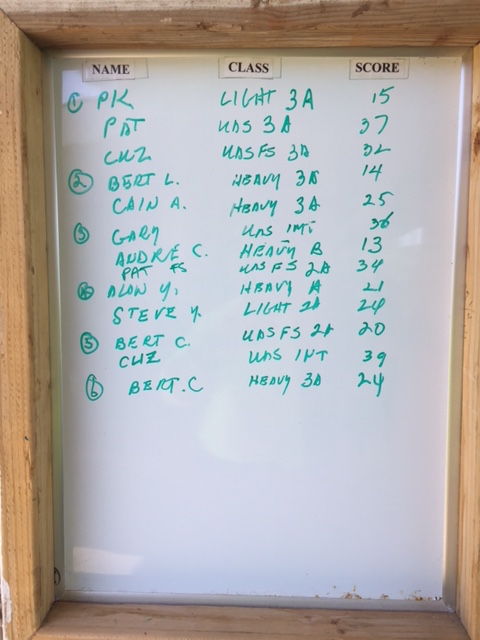 NAME CLASS SCORE
① PK LIGHT 3A 15
PAT UAS 3A 37
CHZ UASFS 3A 32
② BERT L. HEAVY 3A 14
CAIN A. HEAVY 3A 25
③ GARY UAS INT 36
ANDRE C. HEAVY B 13
PAT FS UAS FS 2A 34
④ ALAN Y. HEAVY A 21
STEVE Y. LIGHT 2A 24
⑤ BERT C. UASFS 2A 20
CHZ UAS INT 39
⑥ BERT.C HEAVY 3A 24